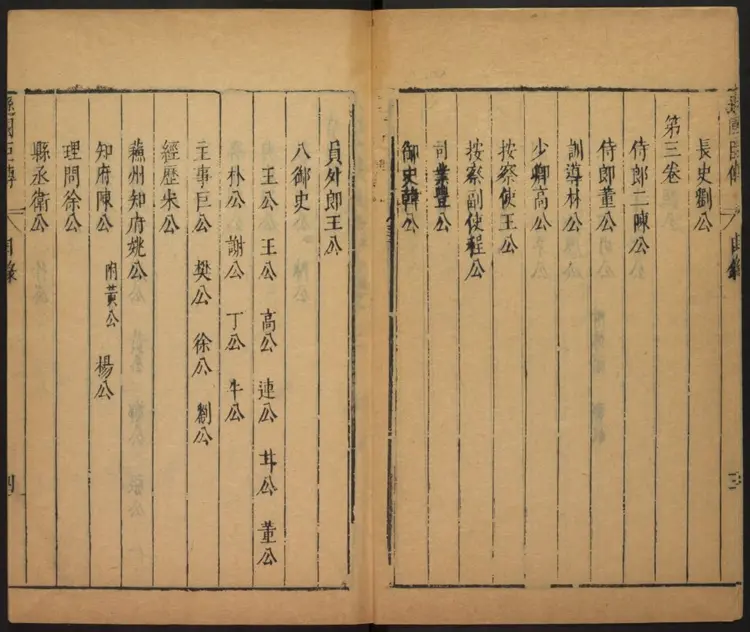 遜國臣傳 目錄 三
長史劉公
第三卷
侍郎二陳公
侍郎董公
訓導林公
少卿高公
按察使王公
按察副使程公
司業豐公
御史韓公
員外郎王公
八御史
王公 王公 高公 連公 甘公 董公
朴公 謝公 丁公 牛公
主事巨公 樊公 徐公 劉公
經歷宋公
蘇州知府姚公
知府陳公 附黃公 楊公
理問徐公
縣丞衛公
遜國臣傳 目錄 四